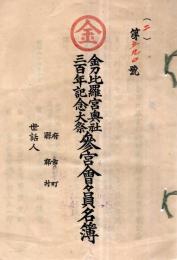 (二)
簿 號
金
金刀比羅宮奥社
三百年記念大祭
參宮會々員名簿
府縣
市郡
町村
世話人